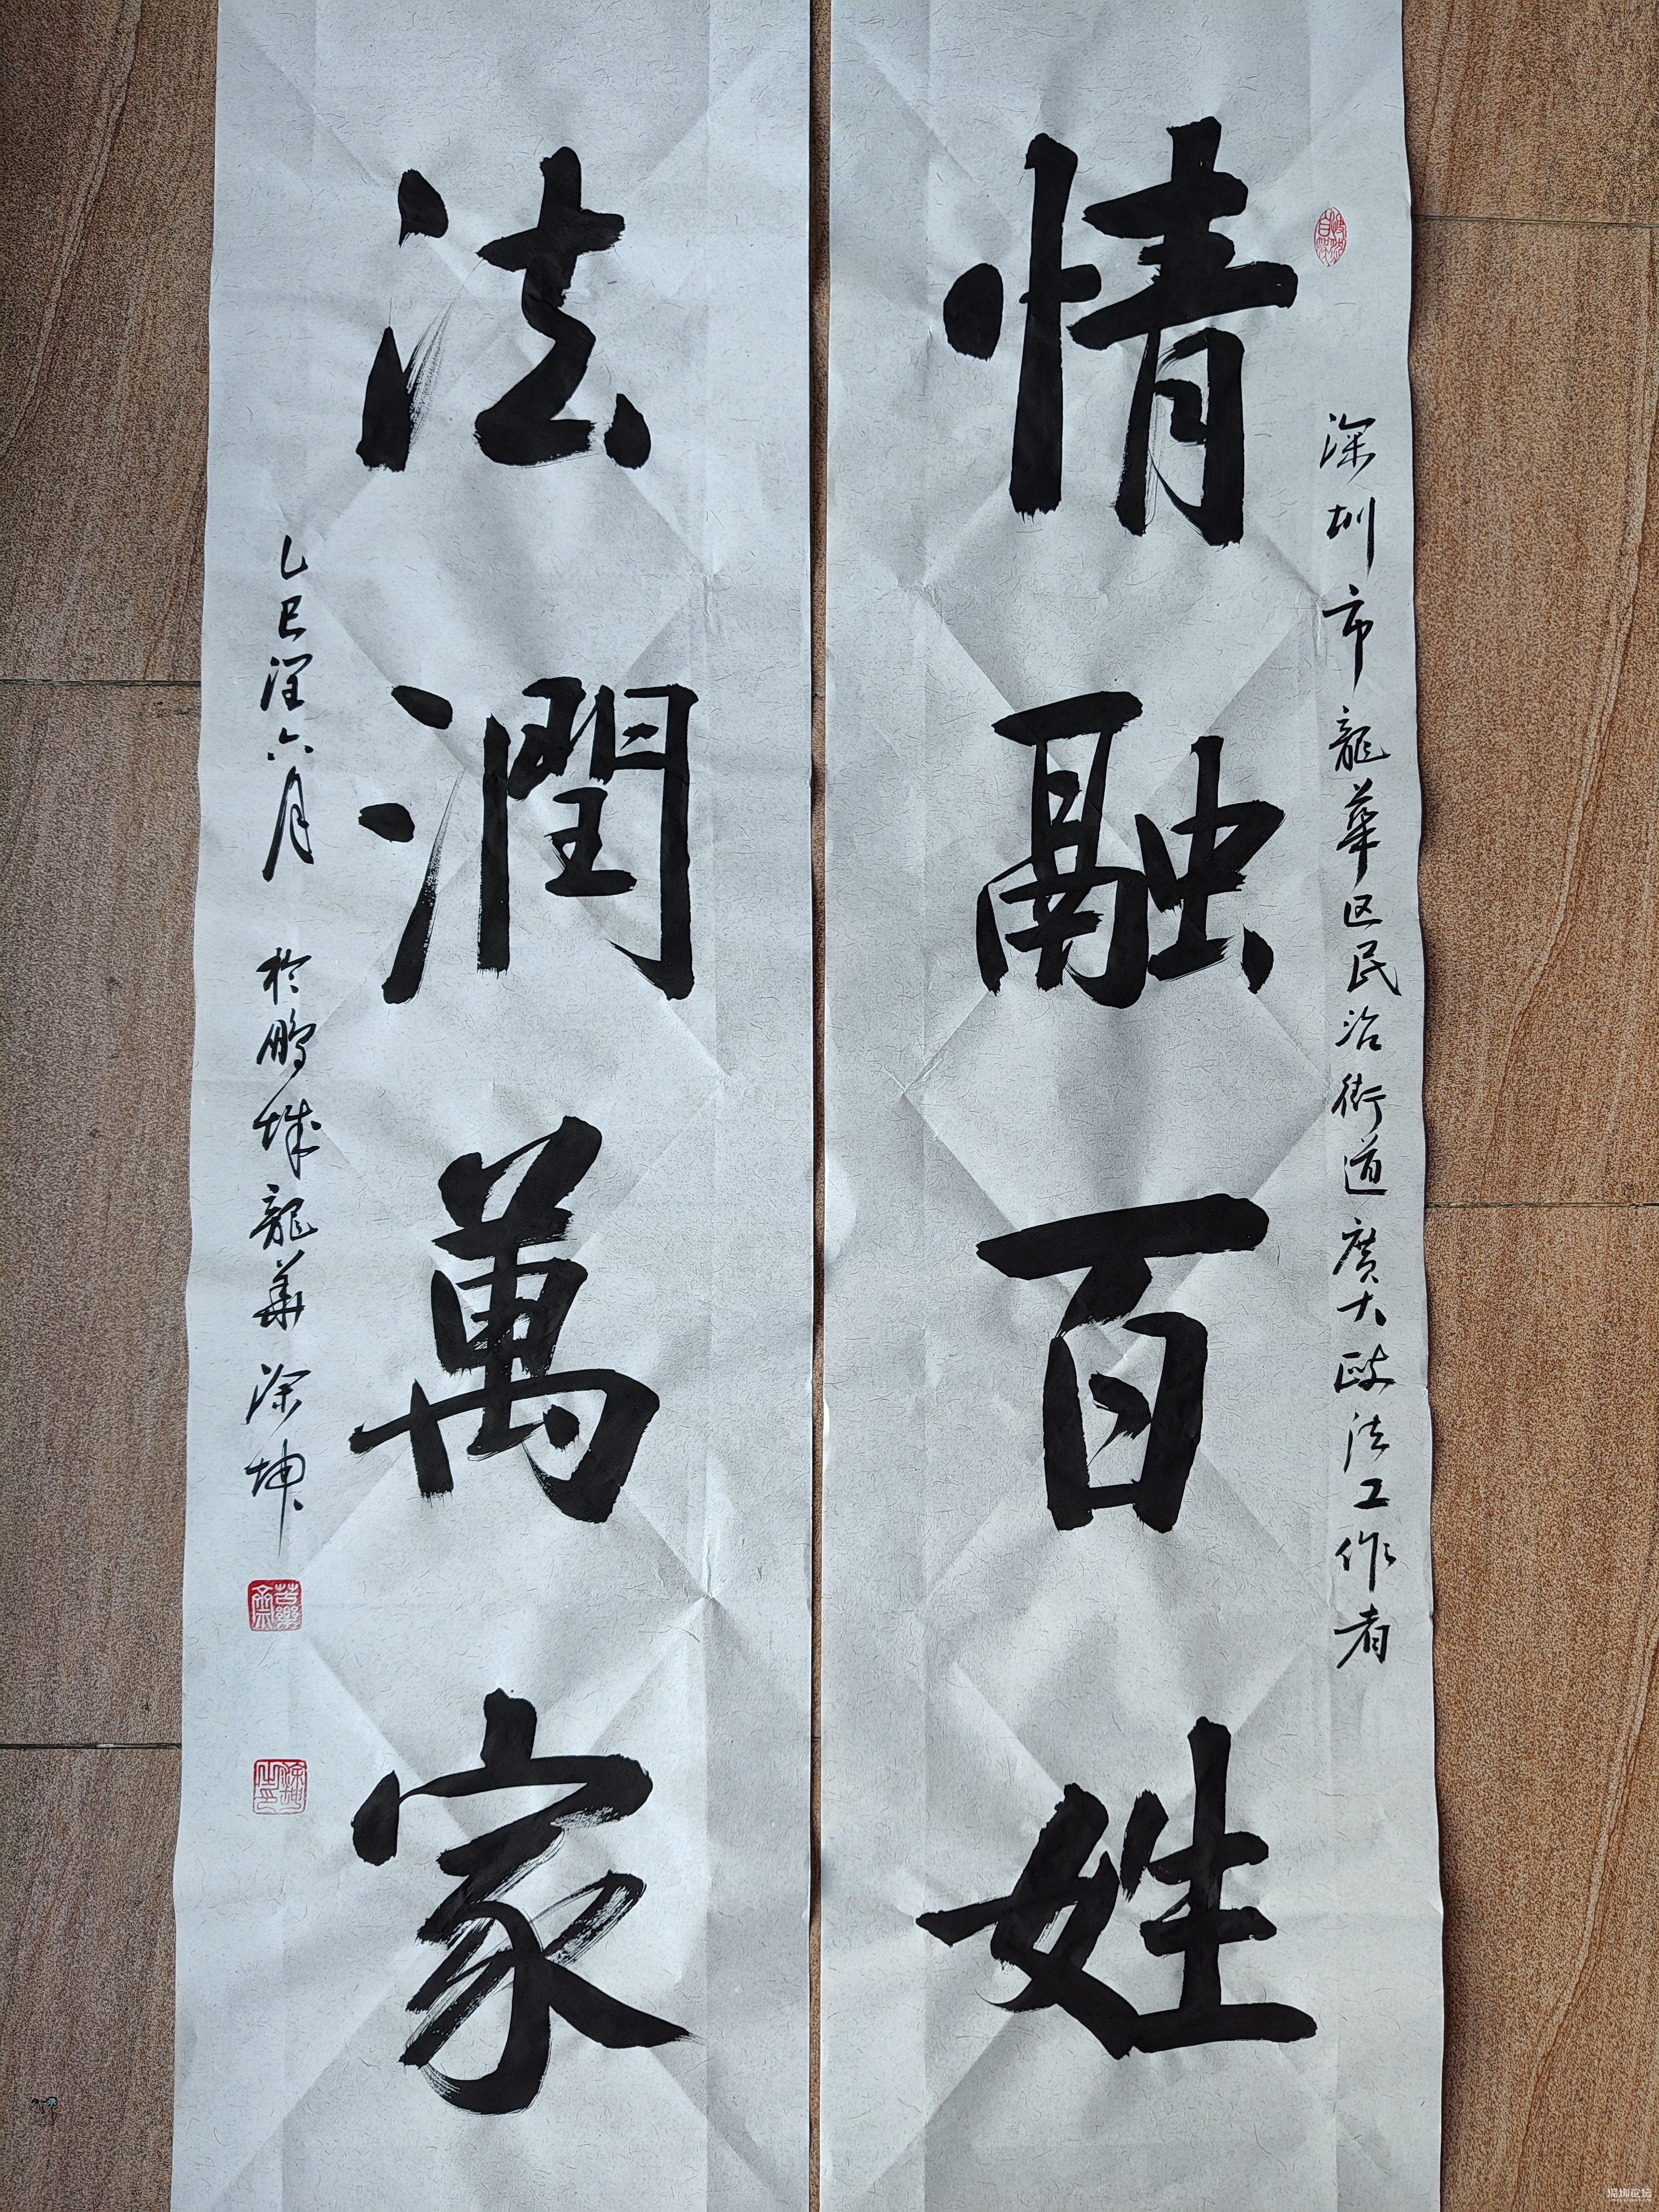 深圳市龍華区民治街道廣大政法工作者
情融百姓
法潤萬家
乙巳潤六月 於鵬城龍華 涂坤
深圳论坛